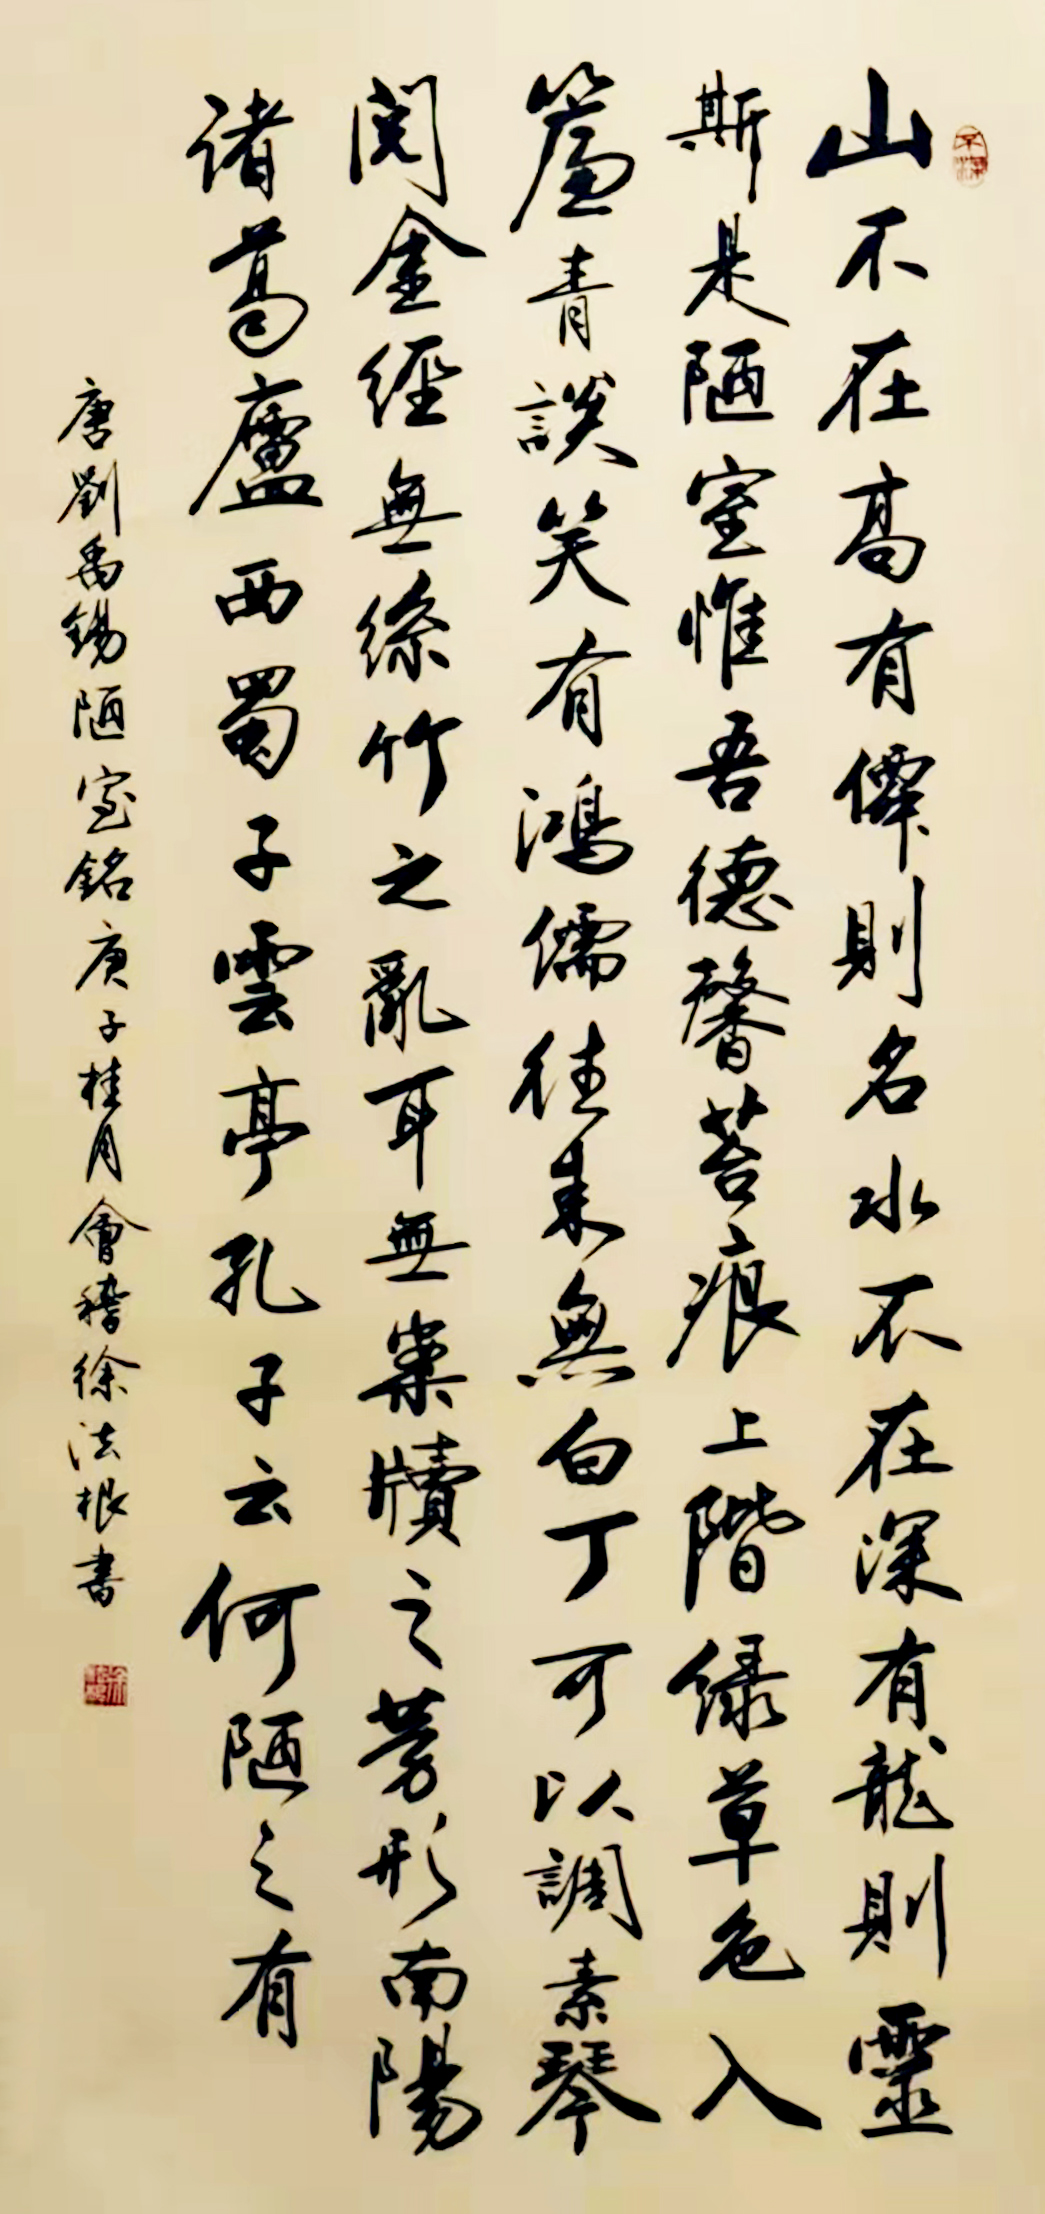 山不在高有僊則名水不在深有龍則靈
斯是陋室惟吾德馨苔痕上階緑草色入
簾青談笑有鴻儒往來無白丁可以調素琴
閱金經無絲竹之亂耳無案牘之勞形南陽
诸葛廬西蜀子雲亭孔子云何陋之有
唐劉禹錫陋室銘庚子桂月會稽徐法根書